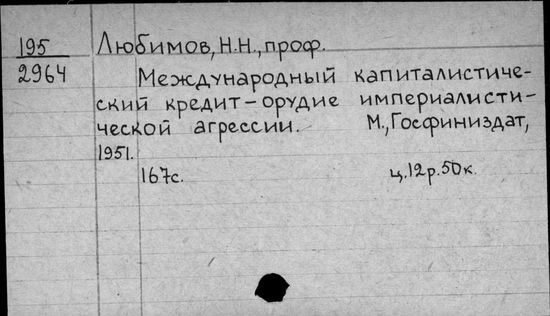 195 Любимов, Н.Н., проф.
2964 Международный капиталистиче-
ский кредит – орудие империалисти-
ческой агрессии. М., Госфиниздат,
1951.
167с. ц.12р.50к.